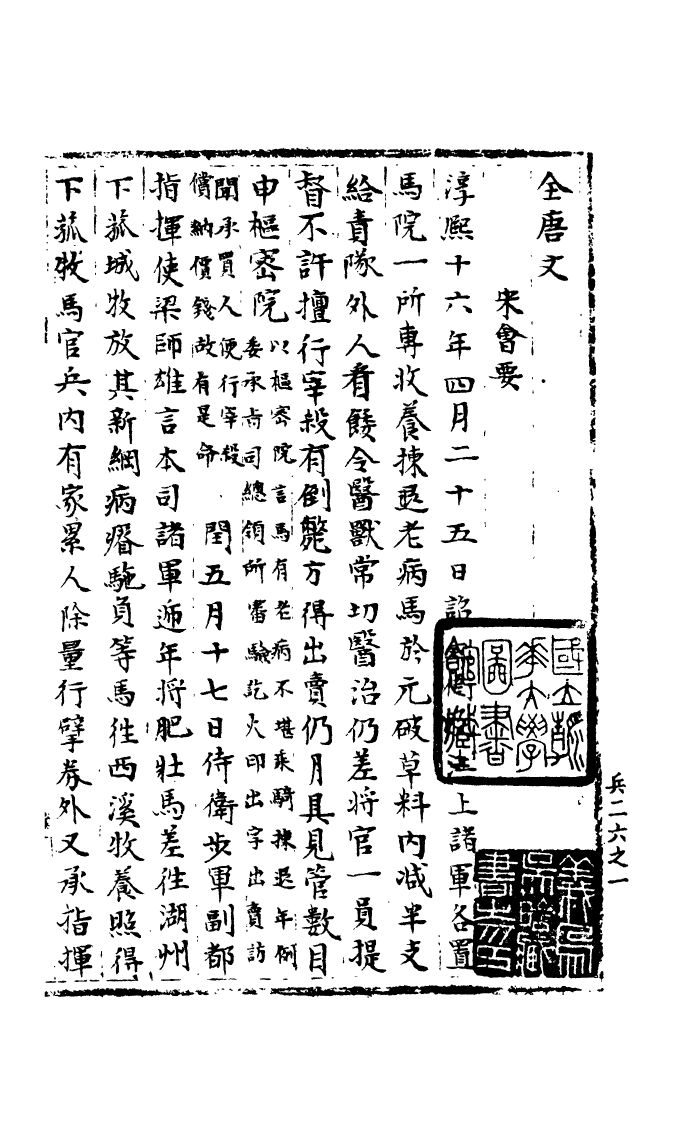 全唐文
宋會要
淳熙十六年四月二十五日詔上諸軍各置
馬院一所專收養揀退老病馬於元破草料內減半支
給責隊外人看餧令醫獸常切醫治仍差將官一員提
督不許擅行宰殺有倒斃方得出賣仍月具見管數目
申樞密院以樞密院言馬有老病不堪乘騎揀退年例
委承㫖司總領所審驗訖火印出字出賣訪
聞承買人便行宰殺
償納價錢故有是命 閏五月十七日侍衛步軍副都
指揮使梁師雄言本司諸軍遞年將肥壯馬差往湖州
下菰城牧放其新綱病瘠馳負等馬往西溪牧養照得
下菰牧馬官兵內有家累人除量行擘券外又承指揮
國立北平大學圖書
兵二六之一